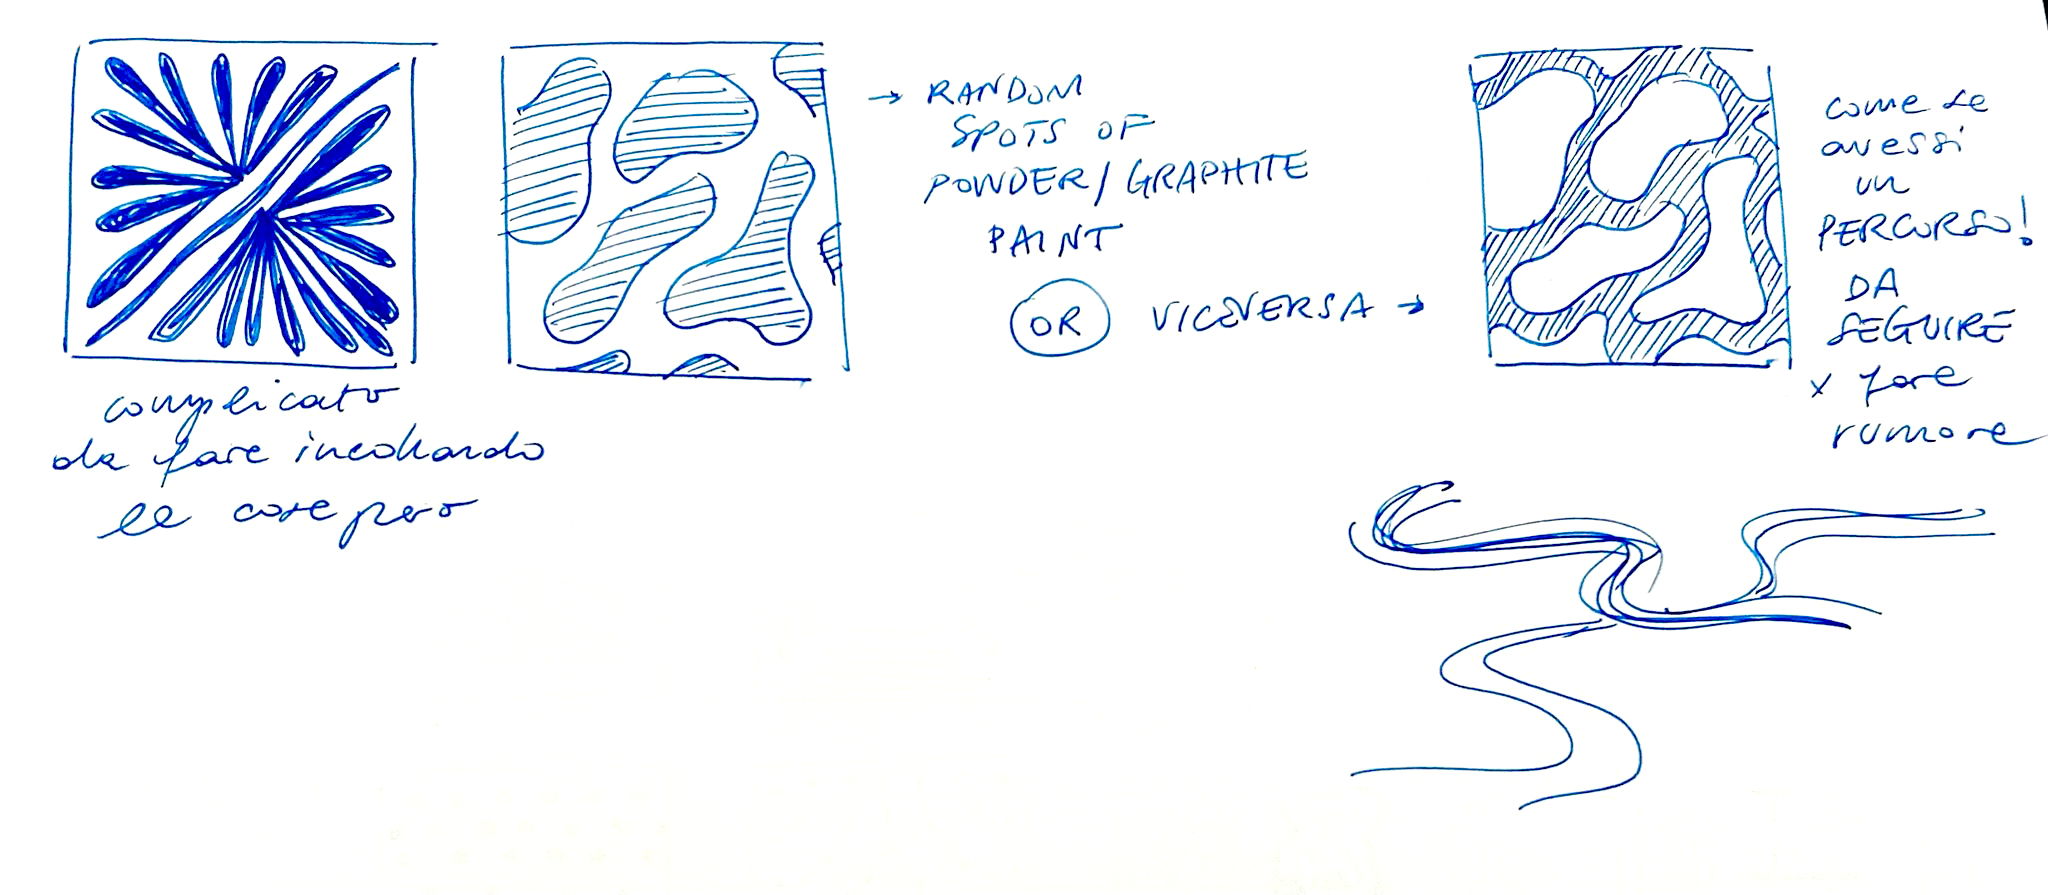 complicato
da fare incollando
le cose però
→ RANDOM
SPOTS OF
POWDER/GRAPHITE
PAINT
OR VICEVERSA →
come se
avessi
un
PERCORSO!
DA
SEGUIRE
x fare
rumore